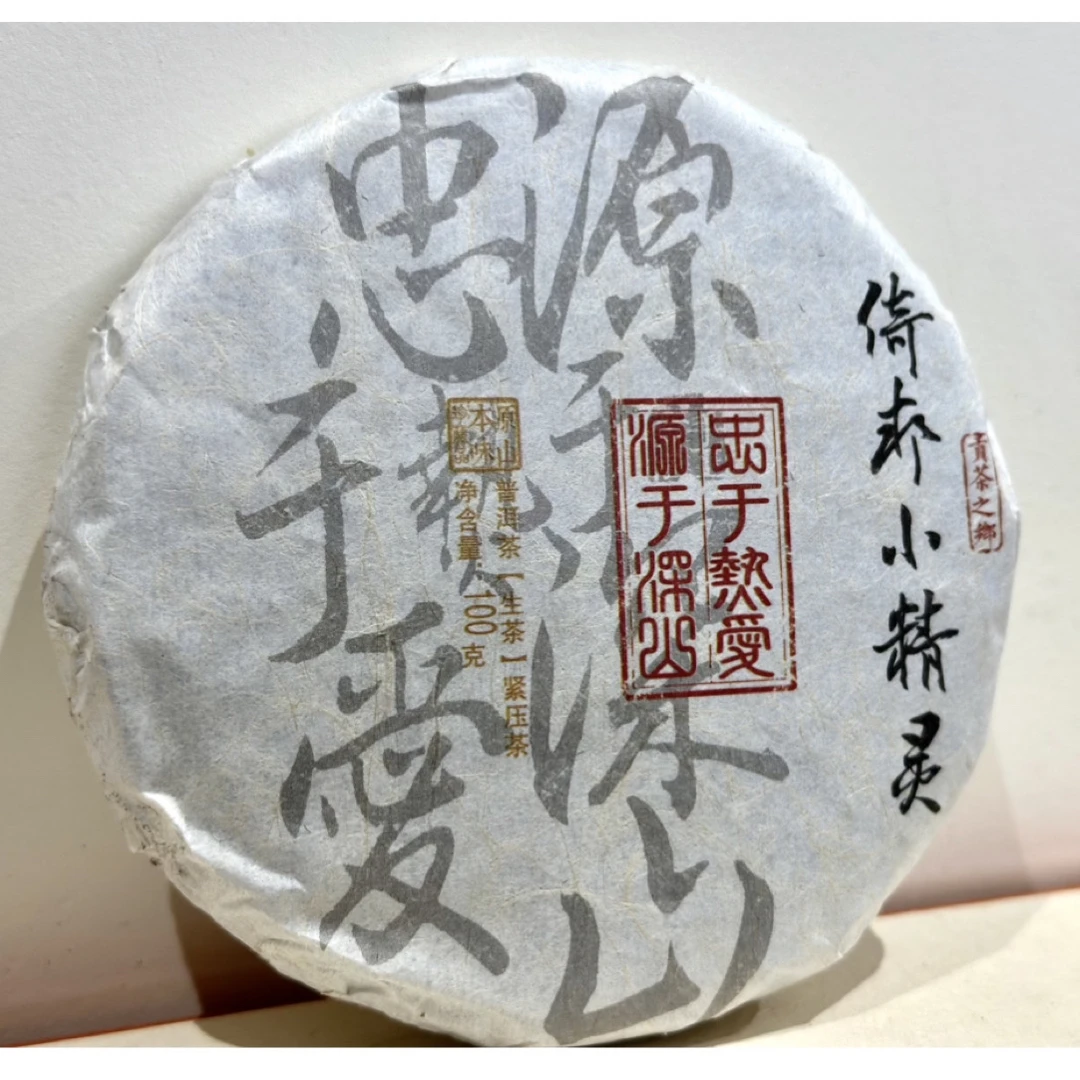 源于深山
忠于熱愛
倚邦小精灵
貢茶之鄉
忠于熱愛
源于深山
原山
本味
普洱茶【生茶】紧压茶
净含量:100克